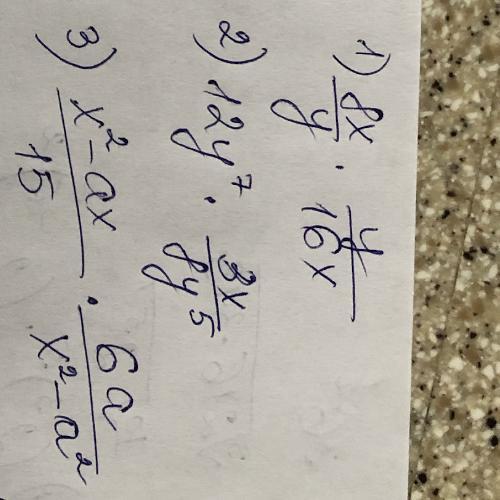 1) 8x/y · y/16x
2) 12y⁷ · 3x/8y⁵
3) x²-ax/15 · 6a/x²-a²